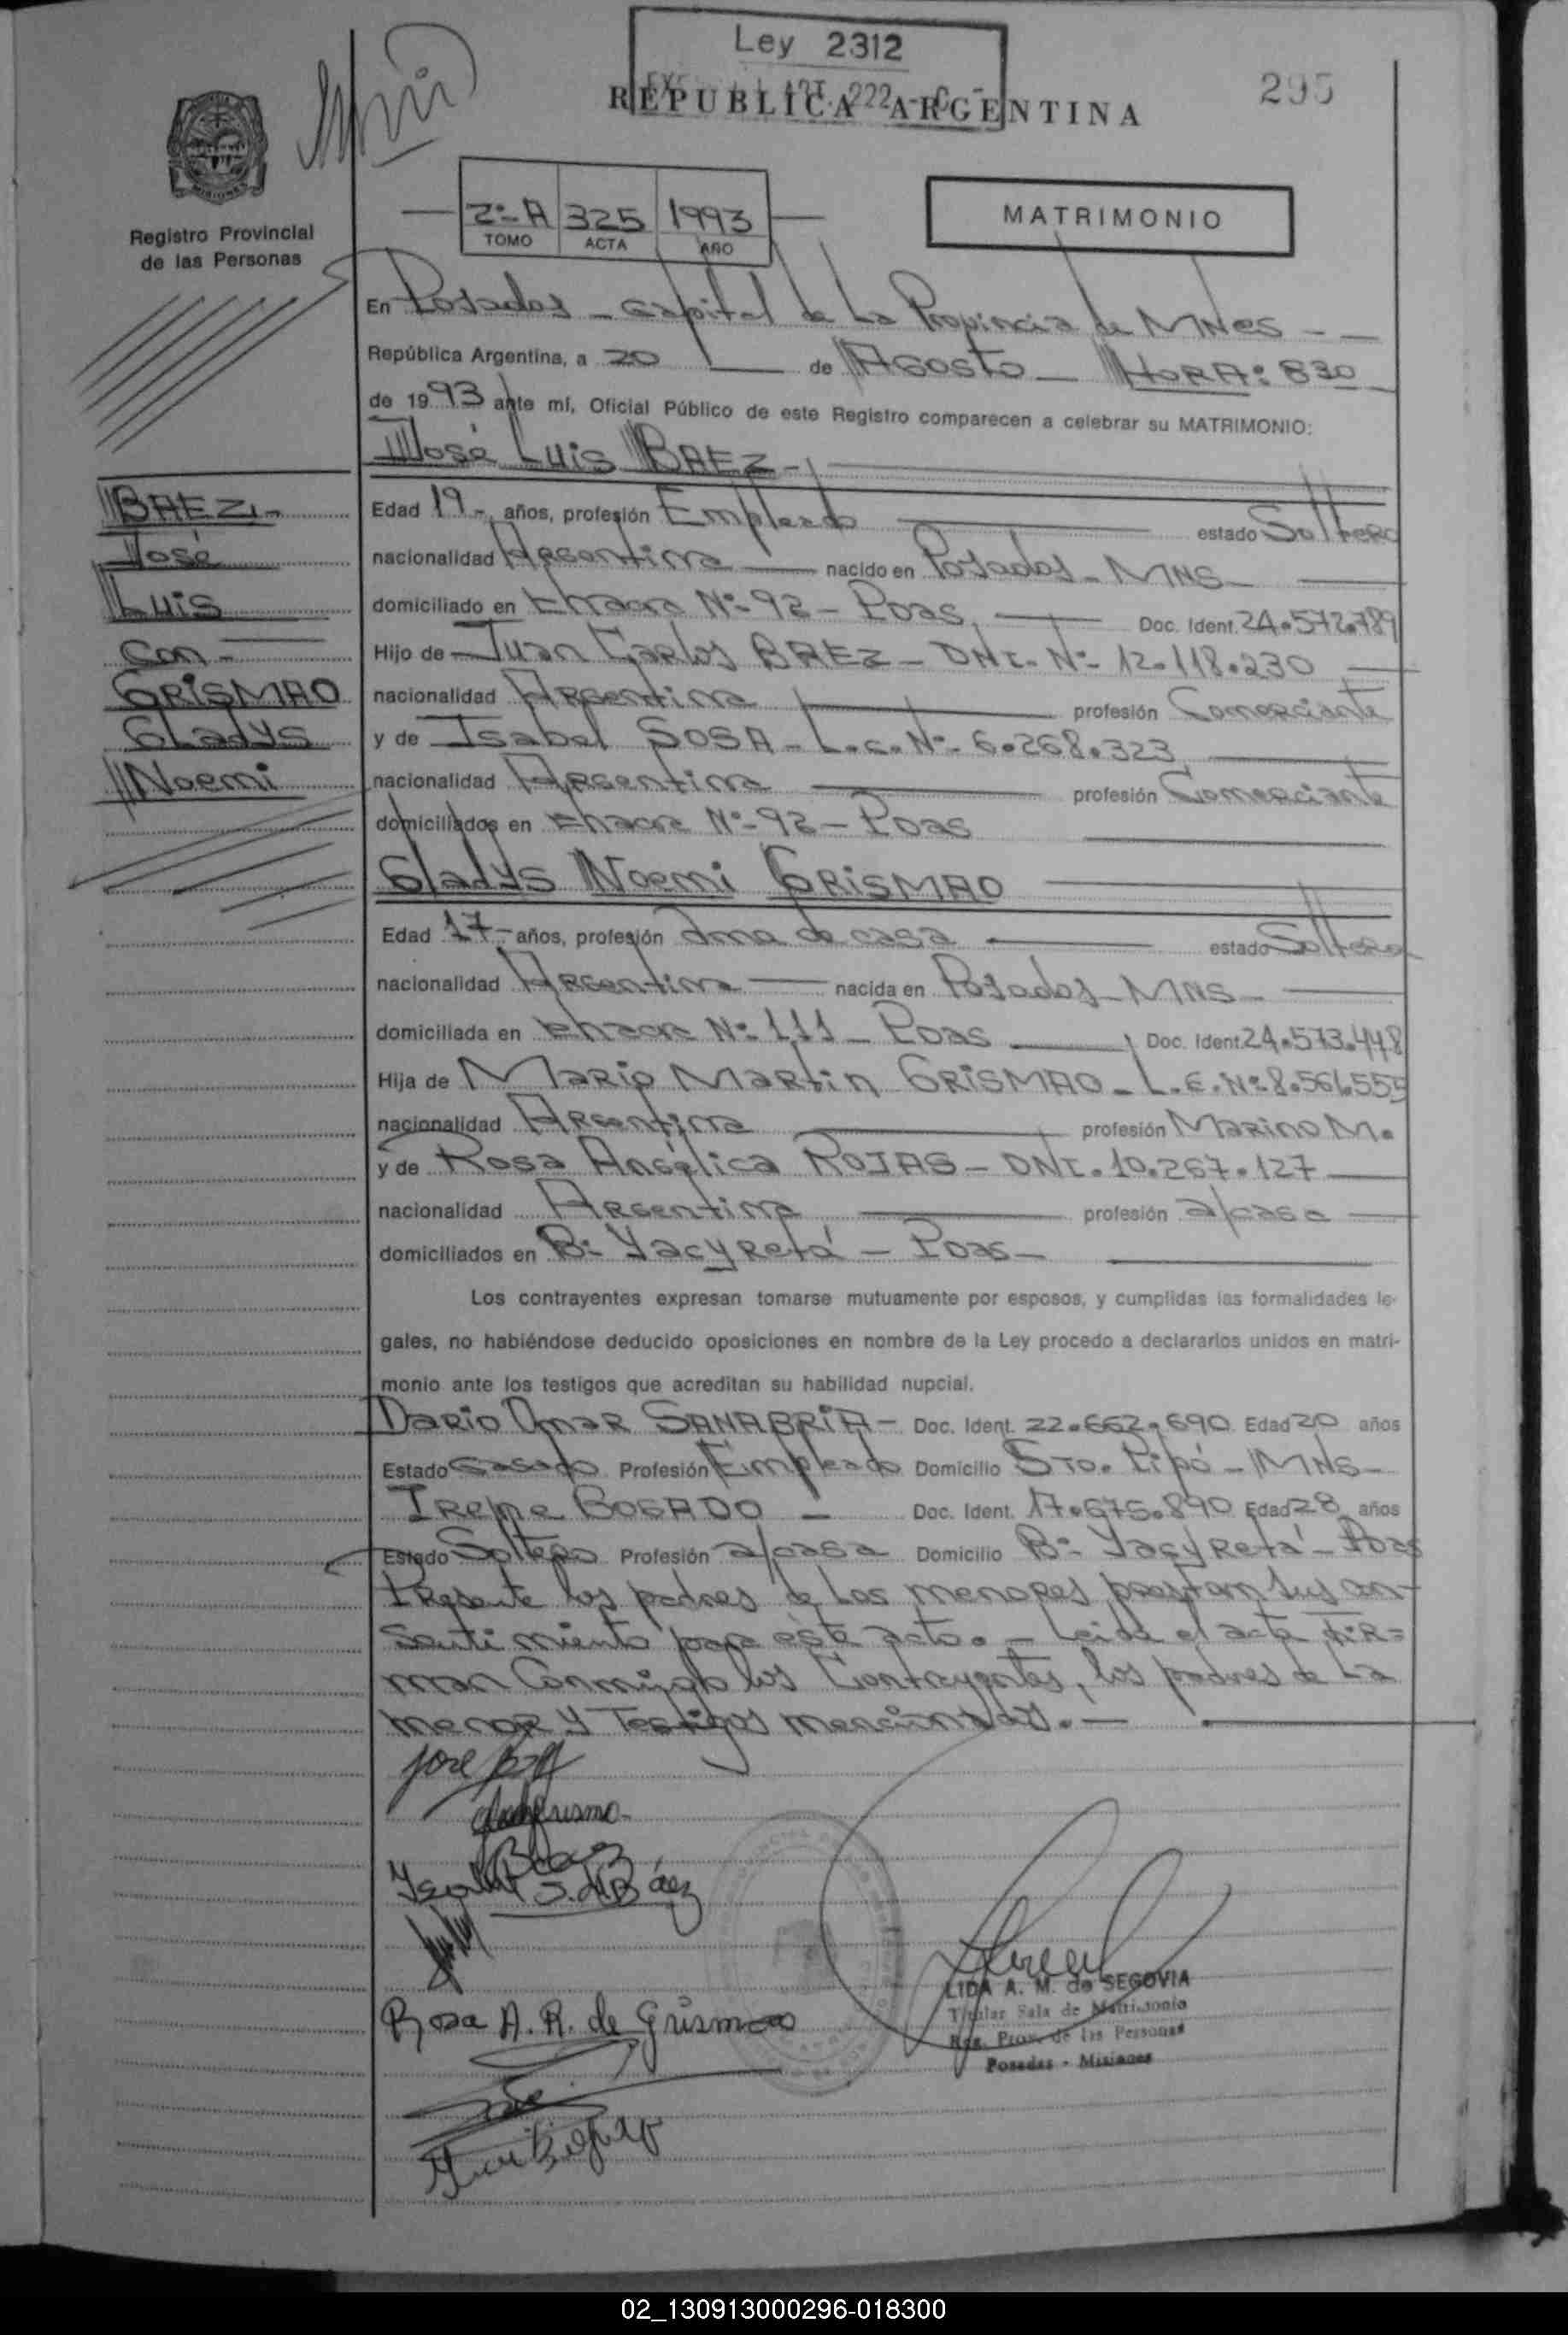 Ley 2312
ART. 222
REPUBLICA ARGENTINA
295
MISIONES
Registro Provincial
de las Personas
2º-A 325 1993
TOMO ACTA AÑO
MATRIMONIO
En Posadas - Capital de La Provincia de MNes - -
República Argentina, a 20 de Agosto - HORA: 830
de 1993 ante mí, Oficial Público de este Registro comparecen a celebrar su MATRIMONIO:
José Luis BAEZ -
BAEZ -
José
Luis
Con -
GRISMAO
Gladys
Noemi
Edad 19 - años, profesión Empleado estado Soltero
nacionalidad Argentina nacido en Posadas - MNS -
domiciliado en Chacra Nº 92 - Pdas. Doc. Ident. 24.572.789
Hijo de Juan Carlos BAEZ - DNI. Nº 12.118.230
nacionalidad Argentina profesión Comerciante
y de Isabel SOSA - L.C. Nº 6.268.323
nacionalidad Argentina profesión Comerciante
domiciliados en Chacra Nº 92 - Pdas
Gladys Noemi GRISMAO
Edad 17 - años, profesión Ama de casa estado Soltera
nacionalidad Argentina nacida en Posadas - MNS -
domiciliada en Chacra Nº 111 - Pdas Doc. Ident. 24.573.448
Hija de Mario Martin GRISMAO - L.E. Nº 8.561.555
nacionalidad Argentina profesión Marino M.
y de Rosa Angélica ROJAS - DNI. 10.267.127
nacionalidad Argentina profesión a/casa
domiciliados en Bº Yacyretá - Pdas -
Los contrayentes expresan tomarse mutuamente por esposos, y cumplidas las formalidades le-
gales, no habiéndose deducido oposiciones en nombre de la Ley procedo a declararlos unidos en matri-
monio ante los testigos que acreditan su habilidad nupcial.
Dario Omar SANABRIA - Doc. Ident. 22.662.690 Edad 20 años
Estado Casado Profesión Empleado Domicilio Sto. Pipó - MNS -
Irene BOGADO - Doc. Ident. 17.675.890 Edad 28 años
Estado Soltera Profesión a/casa Domicilio Bº Yacyretá - Pdas
Presente los padres de los menores prestan sus con-
sentimiento para este acto. - Leida el acta fir=
man Conmigo los Contrayentes, los padres de La
menor y Testigos mencionados. -
José
Isabel S. de Báez
Rosa A. R. de Grismao
LIDA A. M. de SEGOVIA
Titular Sala de Matrimonio
Reg. Prov. de las Personas
Posadas - Misiones
02_130913000296-018300